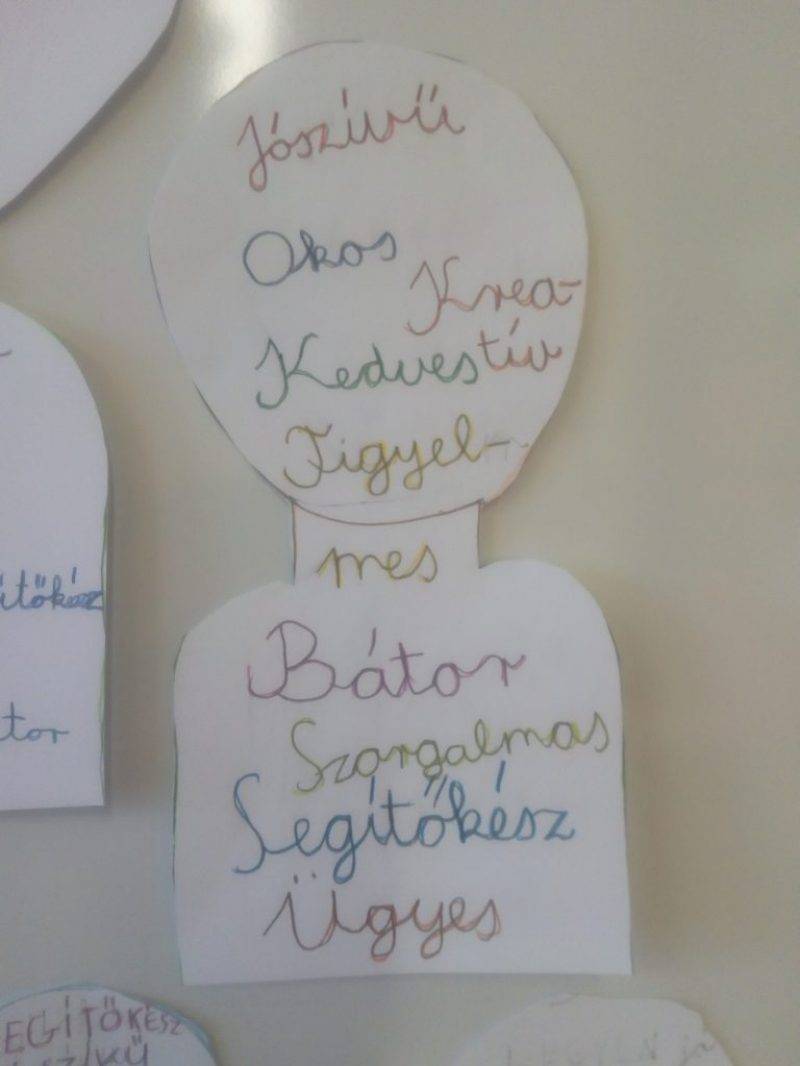 Jószívű
Okos
Krea-
tív
Kedves
Figyel-
mes
Bátor
Szorgalmas
Segítőkész
Ügyes
ítőkész
tor
EGÍTŐKÉSZ